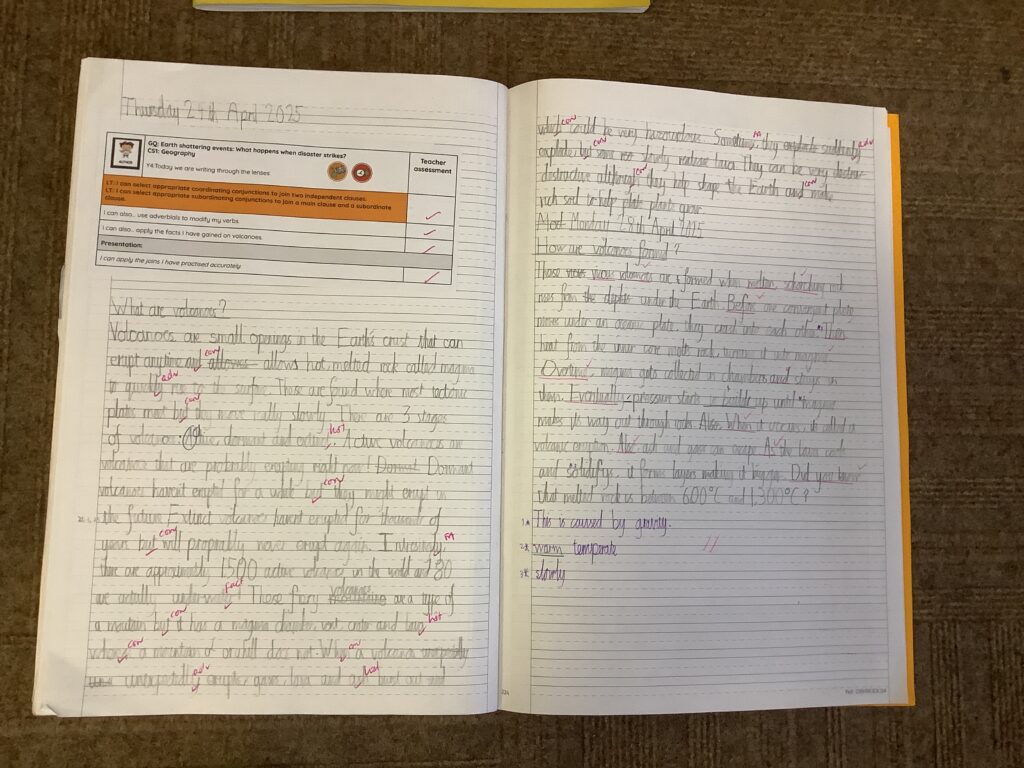 Thursday 24th April 2025
AUTHOR
GQ: Earth shattering events: What happens when disaster strikes?
CS1: Geography
Y4 Today we are writing through the lenses
Teacher assessment
LT: I can select appropriate coordinating conjunctions to join two independent clauses.
LT: I can select appropriate subordinating conjunctions to join a main clause and a subordinate clause.
I can also.. use adverbials to modify my verbs.
I can also.. apply the facts I have gained on volcanoes.
Presentation:
I can apply the joins I have practised accurately
What are volcanoes?
Volcanoes are small openings in the Earth's crust that can
erupt anytime and allowes allows hot, melted rock called magma
to quickly rise to the surface. These are found where most tectonic
plates meet but they move really slowly. There are 3 stages
of volcanoe: Active, dormant and extinct. Active volcanoes are
volcanoes that are probably erupting right now! Dormat Dormant
volcanoes havent erupted for a while but they might erupt in
the future. Extinct volcanoes havent erupted for thousands of
years but will propably never erupt again. Intrestinly,
there are approximately 1500 active volcanoes in the world and 80
are actully underwater! These fiery volcanoes are a type of
a mountain but it has a magma chamber, vent, crater and layers
whereas a mountain or a hill does not. When a volcano
unexpectidly erupts, gases, lava and ash burst out and
which could be very hazardous. Sometimes, they explode suddenly
explode, but some just slowly realease lava. They can be very
destructive although they help shape the Earth and make
rich soil to help plants grow.
Monday 28th April 2025
How are volcanoes formed?
These volcanoes are formed when molten, scorching rock
rises from the depths under the Earth. Before one convergent plate
moves under an oceanic plate, they crash into each other. Then
heat from the inner core melts rock, turning it into magma.
Overtime, magma gets collected in chambers and stays in
them. Eventually, pressure starts to build up until magma
makes its way out through rocks. When it occurs, its called a
volcanic eruption. Also ash and gases can escape. As the lava cools
and solidifys, it forms layers making it bigger. Did you know
that melted rock is between 600°C and 1,300°C?
1* This is caused by gravity.
2* warm temperate
3* slowly